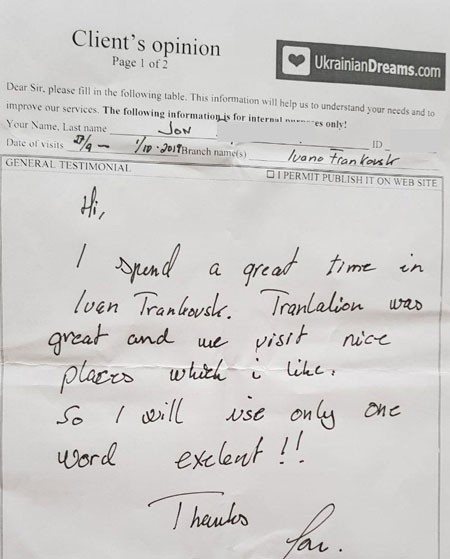 Client's opinion
Page 1 of 2
UkrainianDreams.com
Dear Sir, please fill in the following table. This information will help us to understand your needs and to
improve our services. The following information is for internal purposes only!
Your Name, Last name Jon ID
Date of visits 27/9 - 1/10 - 2019 Branch name(s) Ivano Frankovsk
GENERAL TESTIMONIAL ☐ I PERMIT PUBLISH IT ON WEB SITE
Hi,
I spend a great time in
Ivan Frankovsk. Tranlation was
great and we visit nice
places which i like.
So I will use only one
word exelent !!
Thanks
Jon.